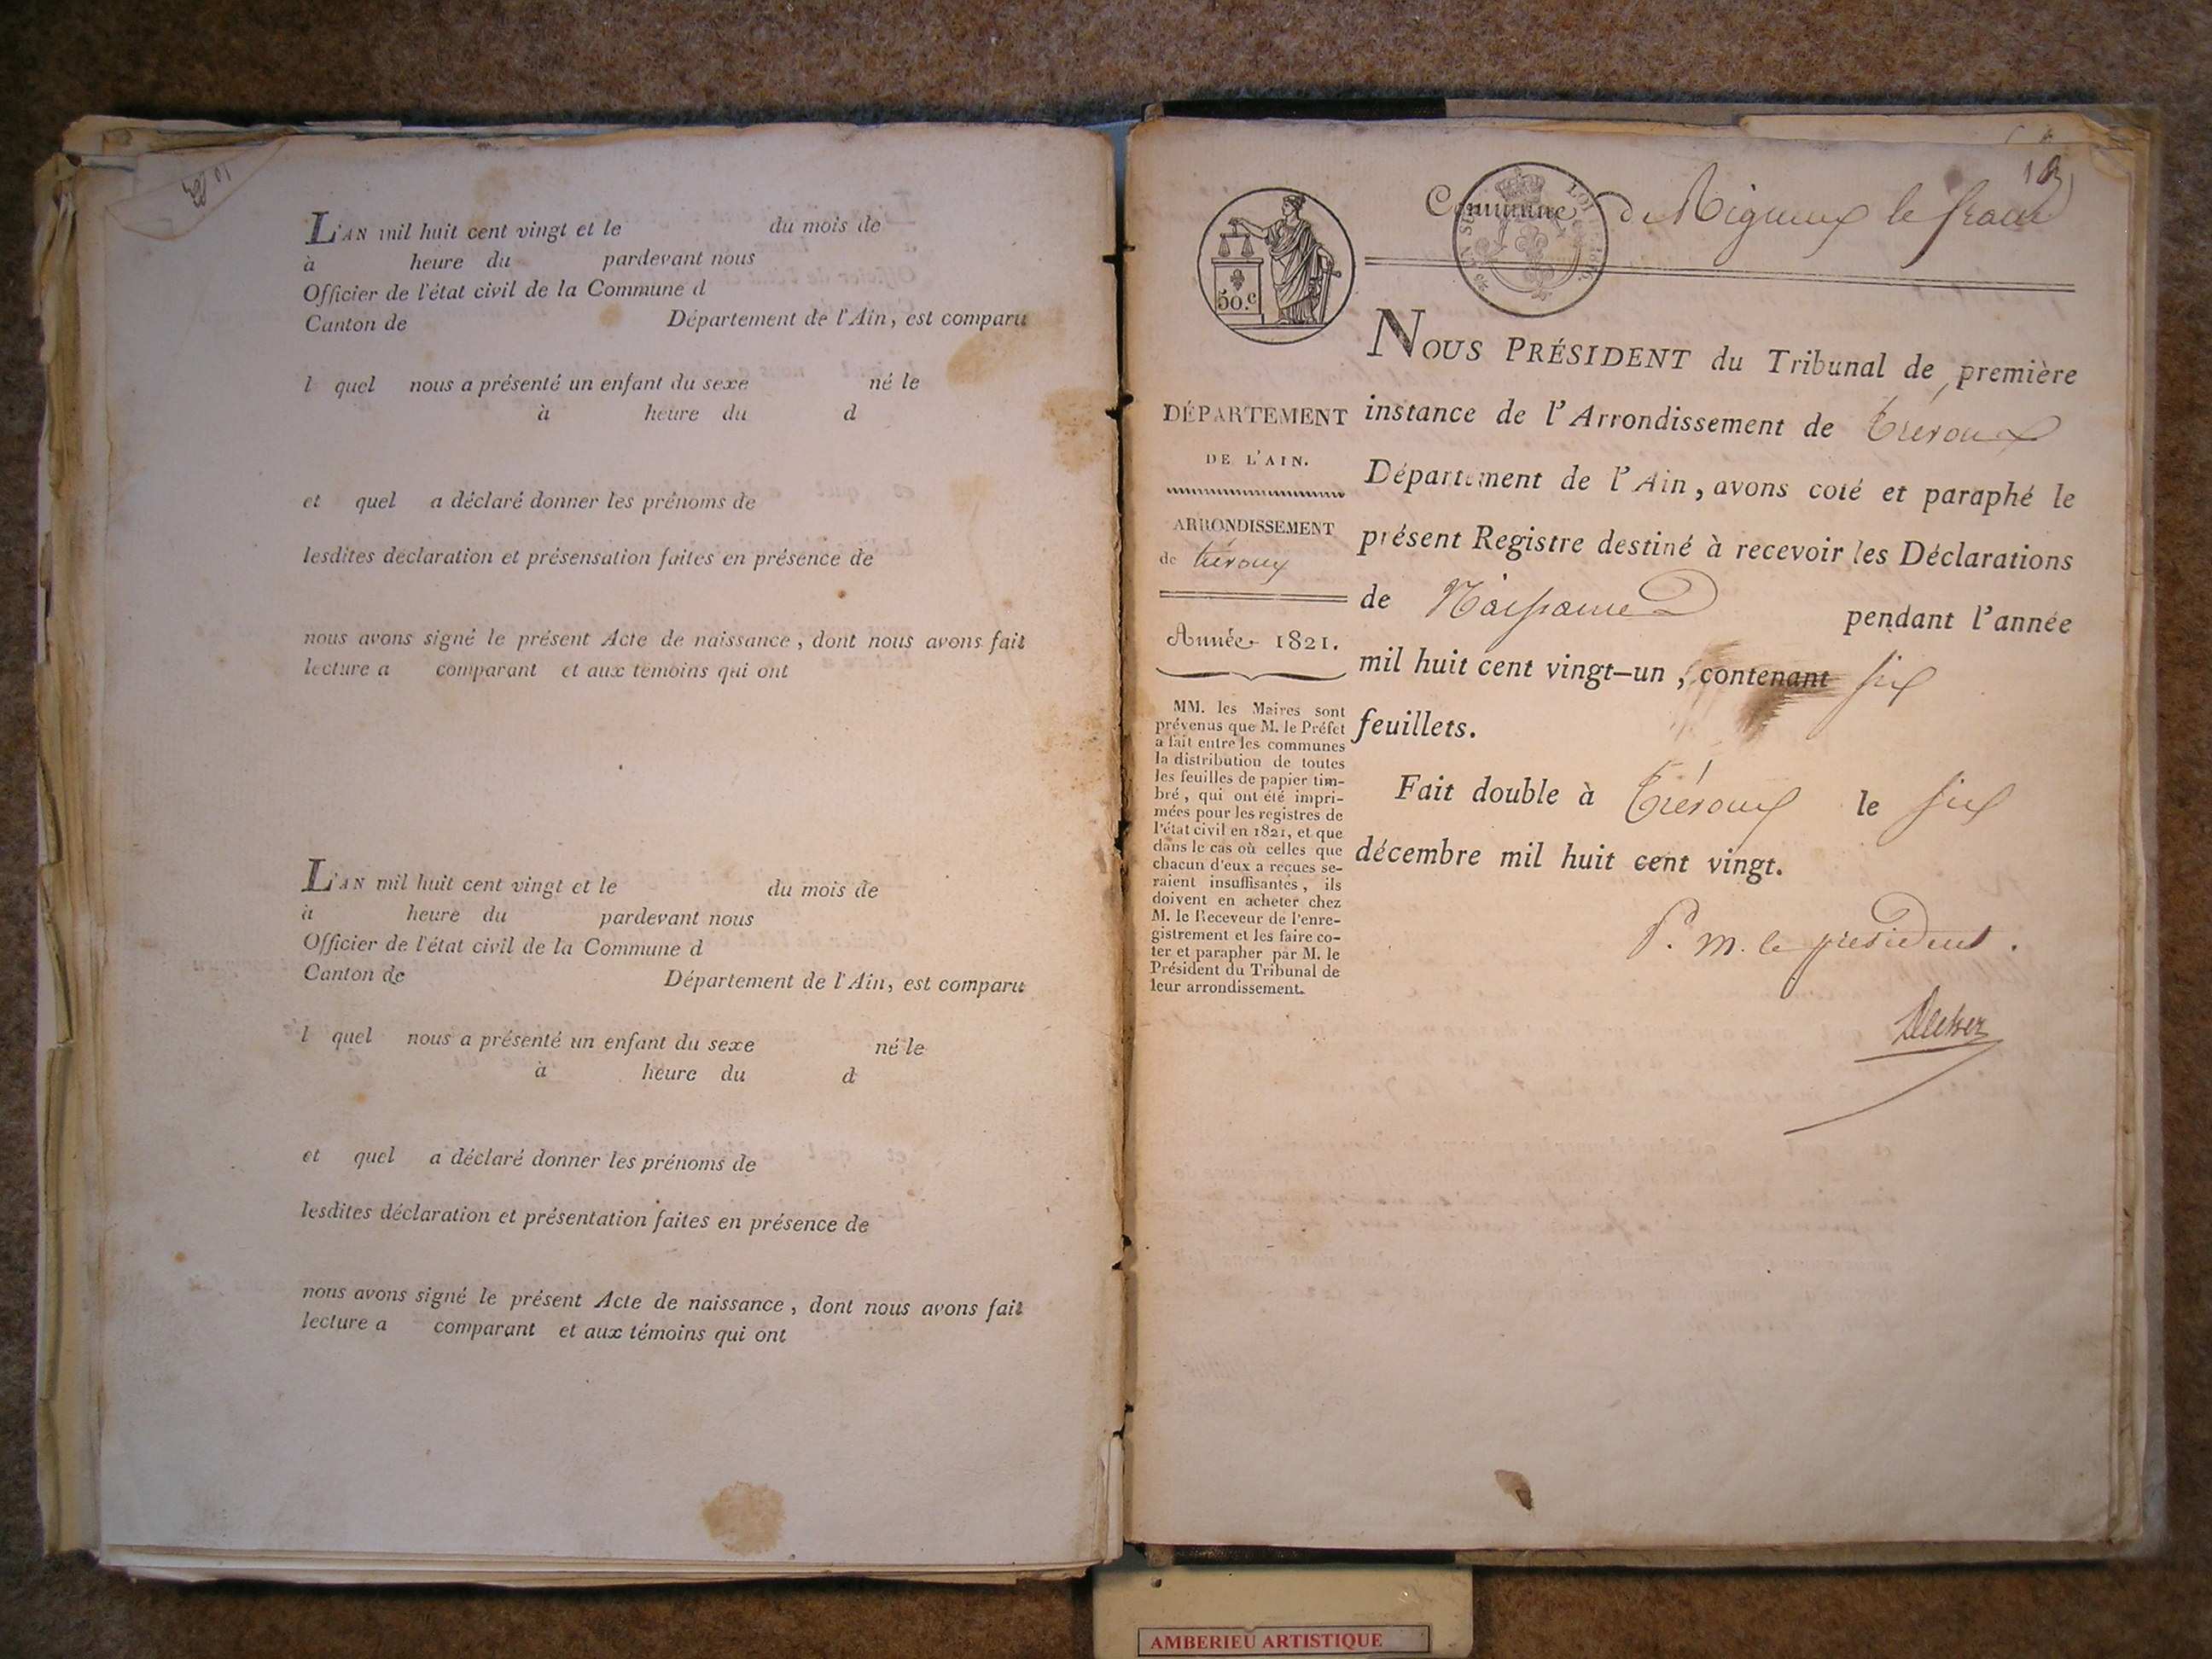 L'AN mil huit cent vingt et le du mois de
à heure du pardevant nous
Officier de l'état civil de la Commune d
Canton de Département de l'Ain, est comparu
l quel nous a présenté un enfant du sexe né le
à heure du d
et quel a déclaré donner les prénoms de
lesdites déclaration et présensation faites en présence de
nous avons signé le présent Acte de naissance, dont nous avons fait
lecture a comparant et aux témoins qui ont
L'AN mil huit cent vingt et le du mois de
à heure du pardevant nous
Officier de l'état civil de la Commune d
Canton de Département de l'Ain, est comparu
l quel nous a présenté un enfant du sexe né le
à heure du d
et quel a déclaré donner les prénoms de
lesdites déclaration et présentation faites en présence de
nous avons signé le présent Acte de naissance, dont nous avons fait
lecture a comparant et aux témoins qui ont
Commune de Migneux le franc
50.c
DÉPARTEMENT
DE L'AIN.
ARRONDISSEMENT
de trévoux
Année 1821.
MM. les Maires sont
prévenus que M. le Préfet
a fait entre les communes
la distribution de toutes
les feuilles de papier tim-
bré, qui ont été impri-
mées pour les registres de
l'état civil en 1821, et que
dans le cas où celles que
chacun d'eux a reçues se-
raient insuffisantes, ils
doivent en acheter chez
M. le Receveur de l'enre-
gistrement et les faire co-
ter et parapher par M. le
Président du Tribunal de
leur arrondissement.
NOUS PRÉSIDENT du Tribunal de première
instance de l'Arrondissement de trévoux
Département de l'Ain, avons coté et paraphé le
présent Registre destiné à recevoir les Déclarations
de Naissance pendant l'année
mil huit cent vingt-un, contenant six
feuillets.
Fait double à trévoux le six
décembre mil huit cent vingt.
P. m. le président.
AMBERIEU ARTISTIQUE